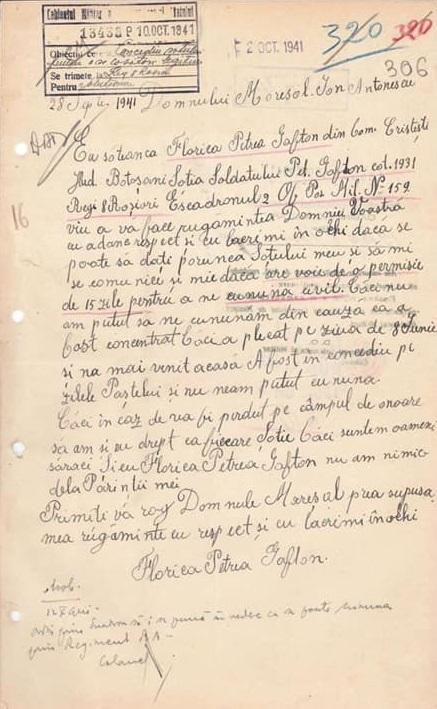 Cabinetul Militar
13435 P 10.OCT.1941
Obiectul
Se trimete la Reg 8 Roșiori
Pentru
2 OCT. 1941
320 320
306
28 Sept. 1941 Domnului Mareșol Ion Antonescu
16
Eu soteanca Florica Petrea Gafton din Com. Cristești
Jud. Botoșani Soția Soldatului Pet. Gafton cot. 1931
Regi 8 Roșiori Escadronul 2 Of. Pos. Mil. No 159
viu a vă face rugămintea Domniei Voastră
cu adanc respect și cu lacrimi în ochi daca se
poate să dați porunca Sotului meu și să mi
se comunice și mie daca are voie de o permisie
de 15 zile pentru a ne cununa civil. Căci nu
am putut sa ne cununăm din cauza ca a
fost concentrat Căci a plecat pe ziua de 8 Iunie
și na mai venit acasă A fost în concediu pe
zilele Paștelui si nu neam putut cununa.
Căci în caz de va fi perdut pe câmpul de onoare
să am și eu drept ca fiecare Soție Căci suntem oameni
săraci Și eu Florica Petrea Gafton nu am nimic
dela Părinții mei
Primiți vă rog Domnule Mareșal prea supusa
mea rugăminte cu respect și cu lacrimi în ochi
Florica Petrea Gafton.
se poate cununa
prin Regiment
Colonel